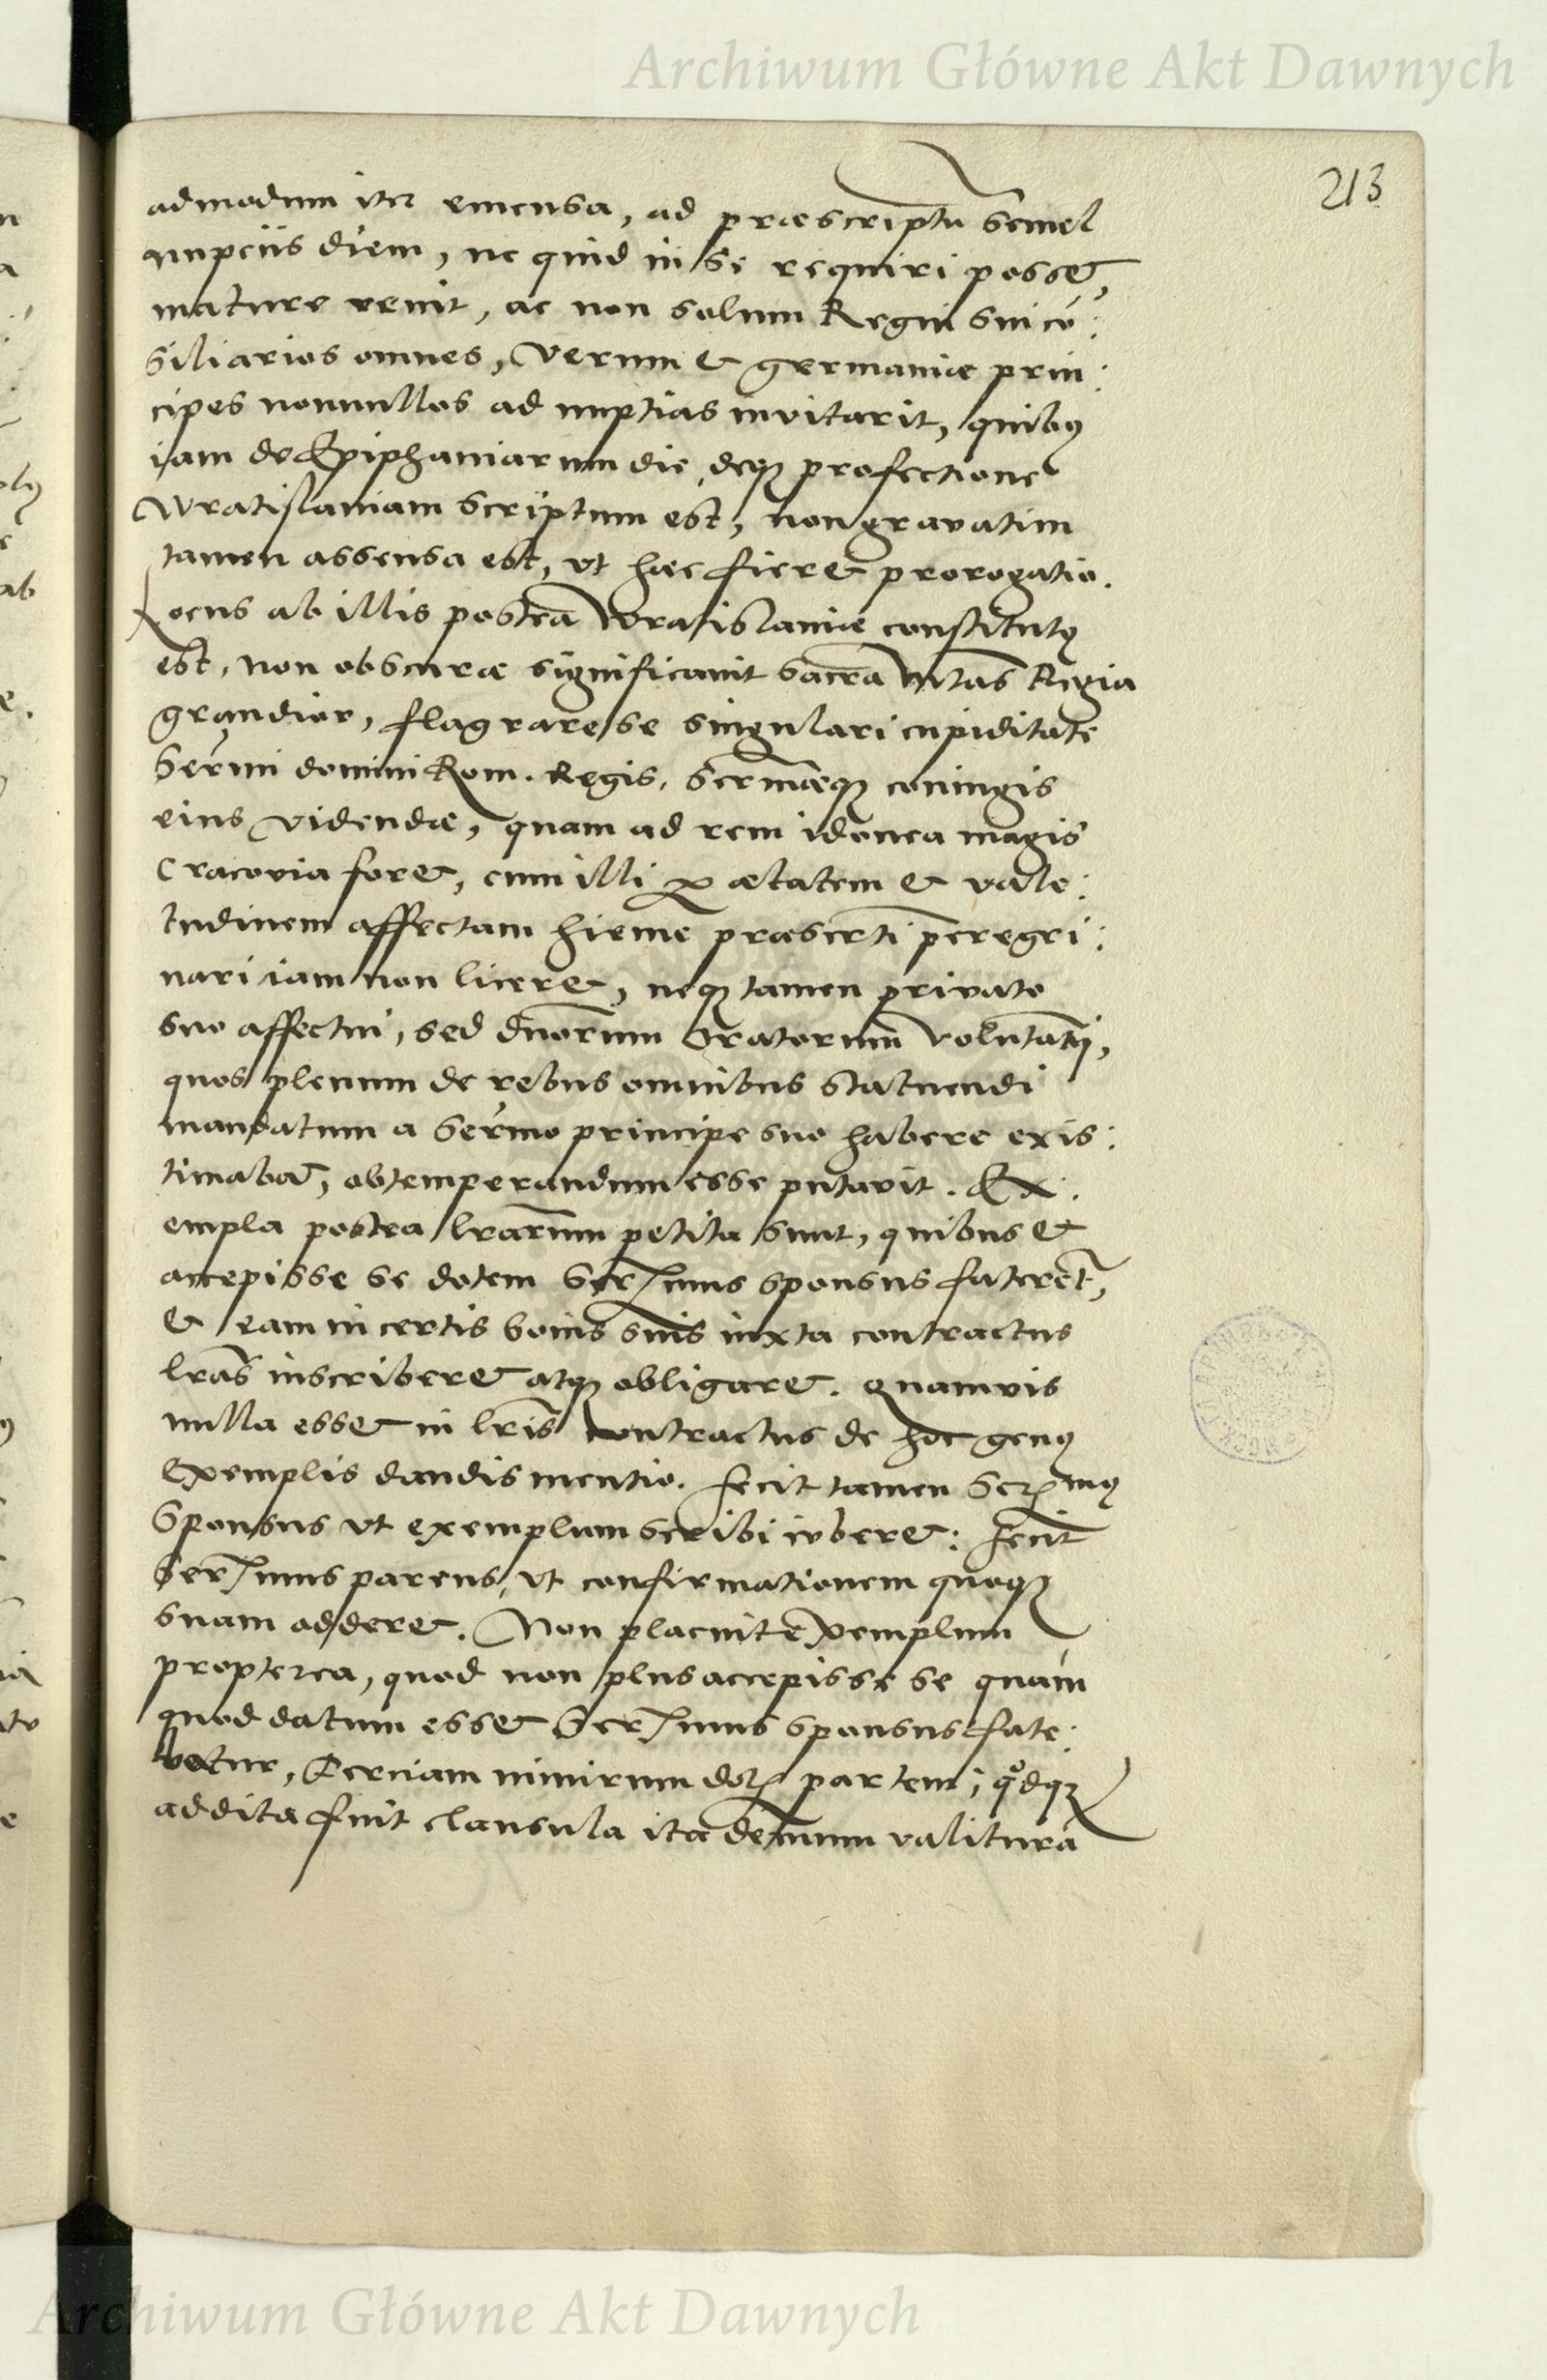 Archiwum Główne Akt Dawnych
213
admodum iter emensa, ad præscriptū semel
nupciis diem, ne quid in se requiri posset,
mature venit, ac non solum Regni sui cō:
siliarios omnes, verum & germaniæ prin:
cipes nonnullos ad nuptias invitarit, quibꝯ
iam de Epiphaniarum die, deqꝫ profectione
Wratislaviam scriptum est, non gravatim
tamen assensa est, vt hæc fieret prorogatio.
Locus ab illis postea Wratislaviæ constitutꝯ
est, non obscuræ significavit sacra Mtas Regia
grandior, flagrare se singulari cupiditate
Sermi domini Rom. Regis, Sermæqꝫ coniugis
eius videndæ, quam ad rem idonea magis
Cracovia foret, cum illi ꝓ ætatem & vale:
tudinem affectam hieme præsertī peregri:
nari iam non liceret, neqꝫ tamen privato
suo affectui, sed dnorum Oratorum voluntati,
quos plenum de rebus omnibus statuendi
mandatum a Sermo principe suo habere exis:
timabat, obtemperandum esse putavit. Ex:
empla postea lrarum petita sunt, quibus &
accepisse se dotem Serꝫmus sponsus fateret,
& eam in certis bonis suis iuxta contractus
lras inscriberet atqꝫ obligaret. Quamvis
nulla esset in lris contractus de hoc genꝯ
exemplis dandis mentio. fecit tamen Serꝫmꝯ
Sponsus vt exemplum scribi iuberet: fecit
Serꝫmus parens, vt confirmationem quoqꝫ
suam adderet. Non placuit exemplum
propterea, quod non plus accepisse se quàm
quod datum esset Serꝫmus sponsus fate:
retur, Terciam nimirum dotꝭ partem; qͦdqꝫ
addita fuit clausula ita demum valiturā
Archiwum Główne Akt Dawnych